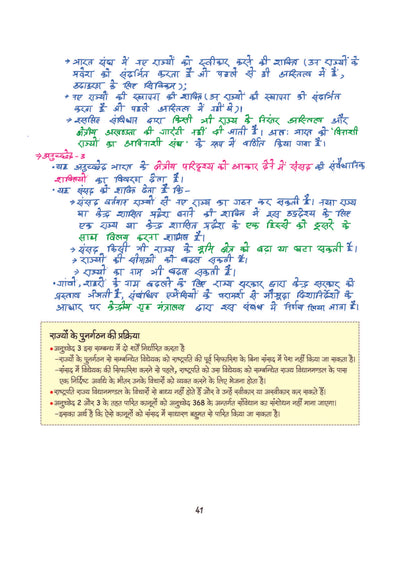 → भारत संघ में नए राज्यों को स्वीकार करने की शक्ति (उन राज्यों के
प्रवेश को संदर्भित करता है जो पहले से ही अस्तित्व में हैं,
उदाहरण के लिए सिक्किम);
→ नए राज्यों को स्थापना की शक्ति (उन राज्यों की स्थापना को संदर्भित
करता है जो पहले अस्तित्व में नहीं थे)।
→ इसलिए संविधान द्वारा किसी भी राज्य के निरंतर अस्तित्व और
क्षेत्रीय अखण्डता की गारंटी नहीं दी जाती है। अतः भारत को 'विनाशी
राज्यों का अविनाशी संघ' के रूप में वर्णित किया गया है।
→ अनुच्छेद - 3
• यह अनुच्छेद भारत के क्षेत्रीय परिदृश्य को आकार देने में संसद की संवैधानिक
शक्तियों का विवरण देता है।
• यह संसद को शक्ति देता है कि-
→ संसद वर्तमान राज्यों से नए राज्य का गठन कर सकती है। तथा राज्य
या केन्द्र शासित प्रदेश बनाने की शक्ति में इस उद्देश्य के लिए
एक राज्य या केन्द्र शासित प्रदेश के एक हिस्से को दूसरे के
साथ विलय करना शामिल है।
→ संसद किसी भी राज्य के भूमि क्षेत्र को बढ़ा या घटा सकती है।
→ राज्यों की सीमाओं को बदल सकती है।
→ राज्यों का नाम भी बदल सकती है।
• गांवों, शहरों के नाम बदलने के लिए राज्य सरकार द्वारा केन्द्र सरकार को
प्रस्ताव भेजती है, संबंधित एजेंसियों के परामर्श से मौजूदा दिशानिर्देशों के
आधार पर केन्द्रीय गृह मंत्रालय द्वारा इस संबंध में निर्णय लिया जाता है।
राज्यों के पुनर्गठन की प्रक्रिया
• अनुच्छेद 3 इस सम्बन्ध में दो शर्तें निर्धारित करता है
–राज्यों के पुनर्गठन से सम्बन्धित विधेयक को राष्ट्रपति की पूर्व सिफारिश के बिना संसद में पेश नहीं किया जा सकता है।
–संसद में विधेयक की सिफारिश करने से पहले, राष्ट्रपति को उस विधेयक को सम्बन्धित राज्य विधानमण्डल के पास
एक निर्दिष्ट अवधि के भीतर उनके विचारों को व्यक्त करने के लिए भेजना होता है।
• राष्ट्रपति राज्य विधानमण्डल के विचारों से बाध्य नहीं होते हैं और वे उन्हें स्वीकार या अस्वीकार कर सकते हैं।
• अनुच्छेद 2 और 3 के तहत पारित कानूनों को अनुच्छेद 368 के अन्तर्गत संविधान का संशोधन नहीं माना जाएगा।
–इसका अर्थ है कि ऐसे कानूनों को संसद में साधारण बहुमत से पारित किया जा सकता है।
41